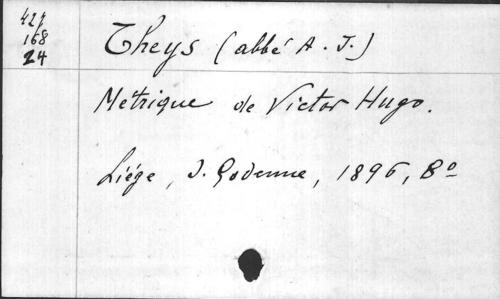 427
168
24
Theys (abbé A. J.)
Métrique de Victor Hugo.
Liége, J. Godenne, 1896, 8º